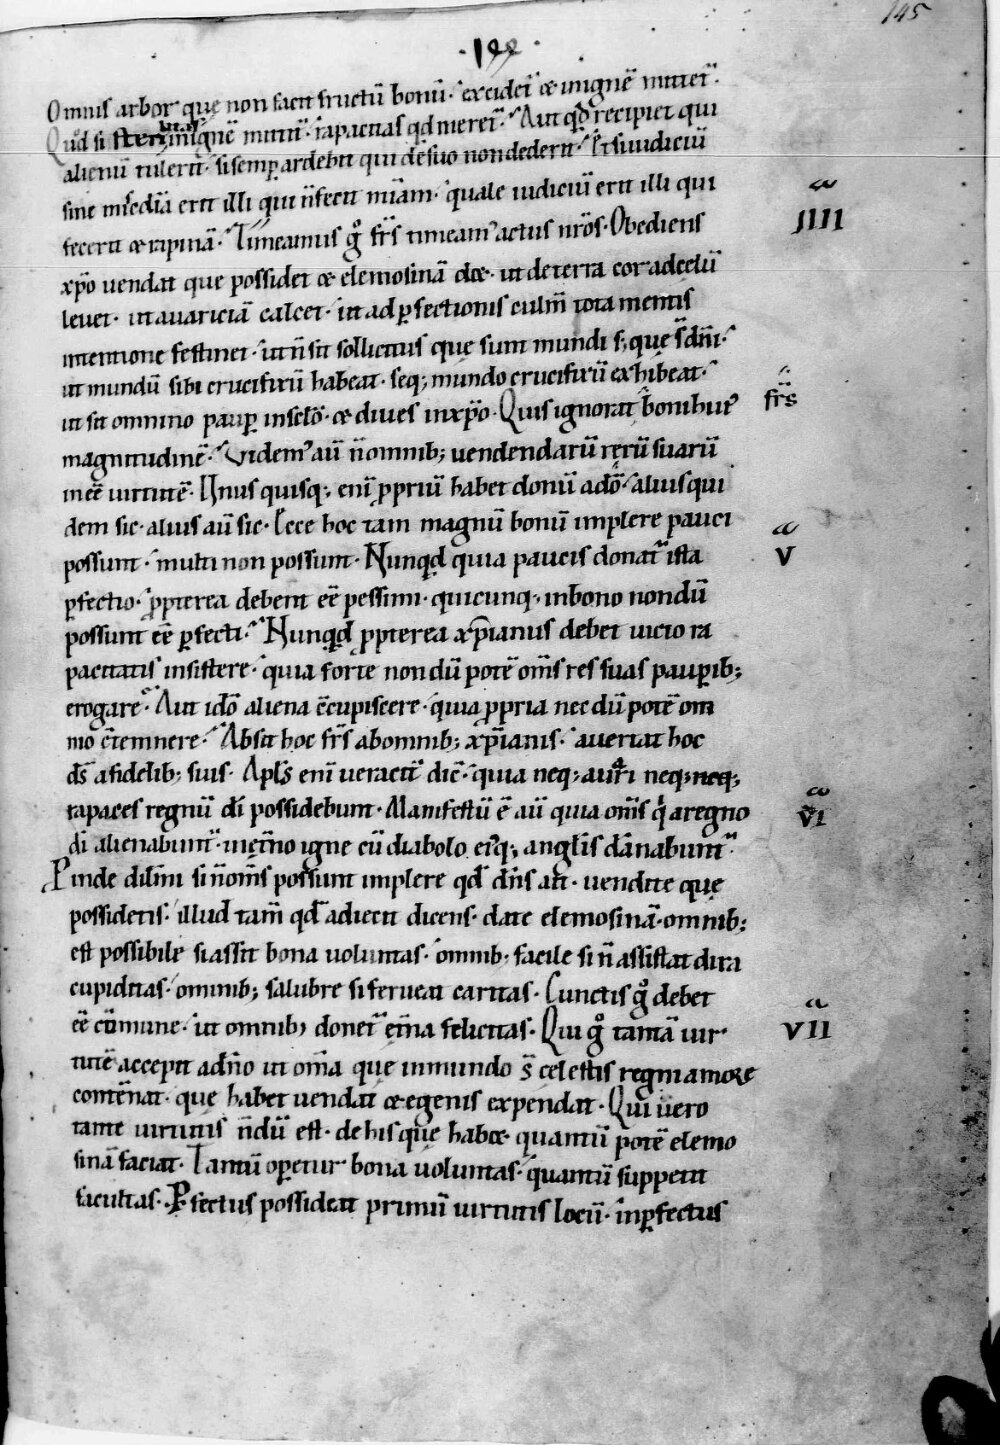 145
·199·
Omnis arbor que non facit fructū bonū · excidet̄ & inignē mittet̄ ·
Quod si sterilitas inignē mittit̄ · rapacitas qd meret̄ · Aut qd recipiet qui
alienū tulerit · si semp ardebit qui de suo non dederit · Et si iudiciū
sine mīscdia erit illi qui n̄ fecit mīam · quale iudiciū erit illi qui
fecerit & rapinā · Timeamus g° frs timeam' actus nr̄os · Obediens
IIII
xp̄o vendat que possidet & elemosinā d& · ut de terra cor ad celū
levet · ut avariciā calcet · ut ad pfectionis culm̄ tota mentis
intentione festinet · ut n̄ sit sollicitus que sunt mundi s; que s̄ dn̄i ·
ut mundū sibi crucifixū habeat · seq; mundo crucifixū exhibeat ·
ut sit omnino paup in sclō · & dives in xp̄o · Quis ignorat boni huī'
frs
magnitudinē · Videm' aū n̄ omnib; vendendarū rerū suarū
inēe virtutē · Unus quisq; enī ppriū habet donū a dō · alius qui
dem sic · alius aū sic · Ecce hoc tam magnū bonū implere pauci
possunt · multi non possunt · Nunqd quia paucis donat̄ ista
V
pfectio · ppterea debent ēe pessimi · quicunq; in bono nondū
possunt ēe pfecti · Nunqd ppterea xp̄ianus debet vicio ra
pacitatis insistere · quia forte non dū potē om̄s res suas paupib;
erogare · Aut idō aliena c̄cupiscere · quia ppria nec dū potē om
nino c̄temnere · Absit hoc frs ab omnib; xp̄ianis · avertat hoc
ds a fidelib; suis · Apls enī veracit̄ dic̄ · quia neq; avari neq; neq;
rapaces regnū dī possidebunt · Manifestū ē aū quia om̄s qi a regno
VI
dī alienabunt̄ · in et̄no igne cū diabolo ei'q; anglis dānabunt̄ ·
Pinde dilm̄i si n̄ om̄s possunt implere qd dn̄s ait · vendite que
possidetis · illud tam̄ qd adiecit dicens · date elemosinā · omnib;
est possibile si assit bona voluntas · omnib; facile si n̄ assistat dira
cupiditas · omnib; salubre si ferveat caritas · Cunctis g° debet
ēe cōmune · ut omnib; donet̄ et̄na felicitas · Qui g° tantā vir
VII
tutē accepit a dn̄o ut om̄a que in mundo s̄ celestis regni amore
contēnat · que habet vendat & egenis expendat · Qui vero
tante virtutis n̄dū est · de his que hab& · quantū potē elemo
sinā faciat · Tantū opetur bona voluntas · quantū suppetit
facultas · Pfectus possideat primū virtutis locū · inpfectus